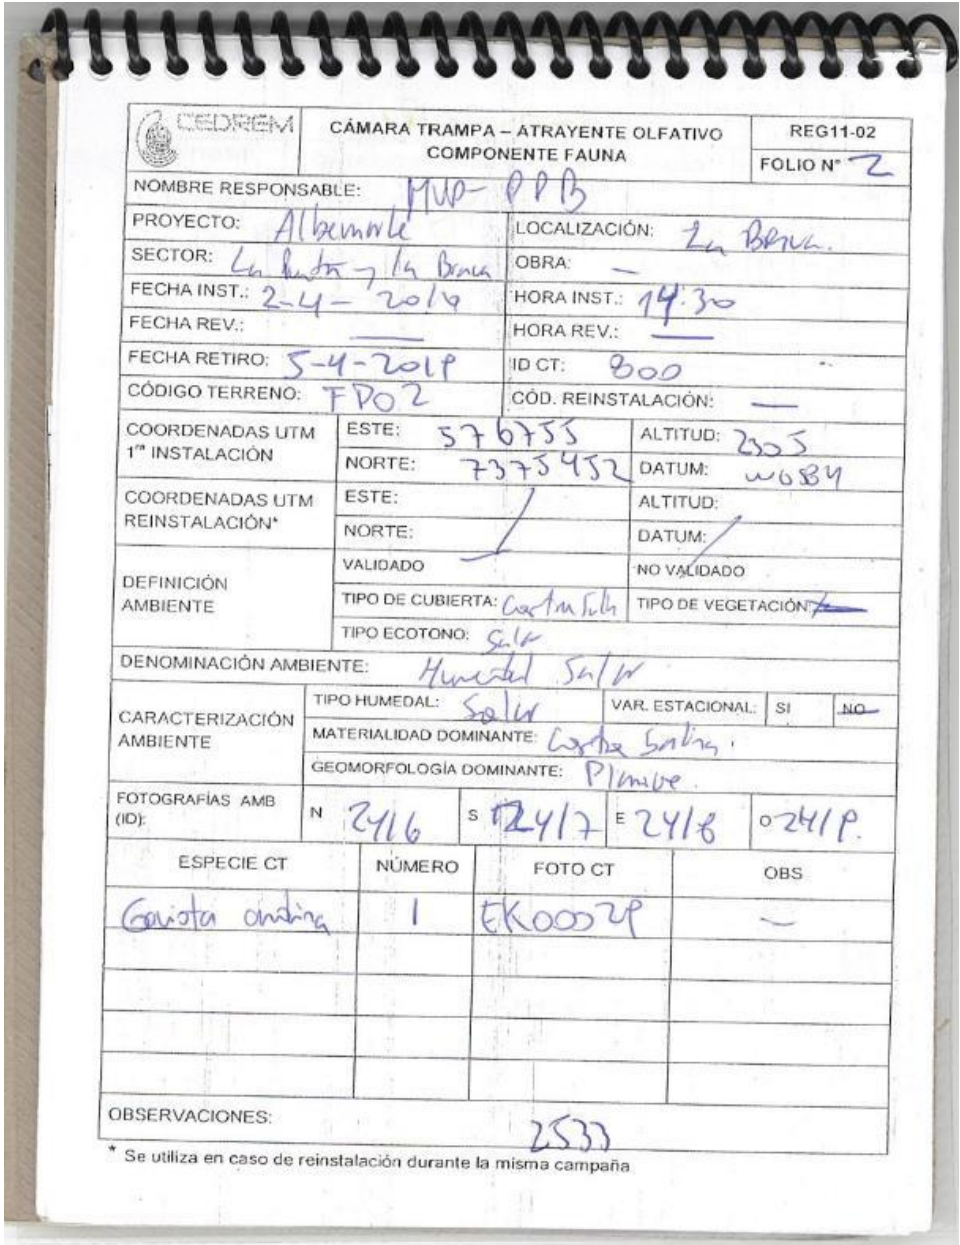 CEDREM
CÁMARA TRAMPA – ATRAYENTE OLFATIVO
COMPONENTE FAUNA
REG11-02
FOLIO N° 2
NOMBRE RESPONSABLE: MVP- PPB
PROYECTO: Albemarle
LOCALIZACIÓN: La Brava.
SECTOR: La Punta y la Brava
OBRA: —
FECHA INST.: 2-4-2019
HORA INST.: 14:30
FECHA REV.: —
HORA REV.: —
FECHA RETIRO: 5-4-2019
ID CT: 800
CÓDIGO TERRENO: FP02
CÓD. REINSTALACIÓN: —
COORDENADAS UTM
1ra INSTALACIÓN
ESTE: 576755
ALTITUD: 2305
NORTE: 7375452
DATUM: WGS84
COORDENADAS UTM
REINSTALACIÓN*
ESTE:
ALTITUD:
NORTE:
DATUM:
DEFINICIÓN
AMBIENTE
VALIDADO
NO VALIDADO
TIPO DE CUBIERTA: Costra Salina
TIPO DE VEGETACIÓN: —
TIPO ECOTONO: Salar
DENOMINACIÓN AMBIENTE: Humedal Salar
CARACTERIZACIÓN
AMBIENTE
TIPO HUMEDAL: Salar
VAR. ESTACIONAL: SI NO
MATERIALIDAD DOMINANTE: Costra Salina.
GEOMORFOLOGÍA DOMINANTE: Planicie.
FOTOGRAFÍAS AMB
(ID):
N 2416
S 2417
E 2418
O 2419.
ESPECIE CT NÚMERO FOTO CT OBS
Gaviota andina 1 EK000029 —
OBSERVACIONES: 2533
* Se utiliza en caso de reinstalación durante la misma campaña